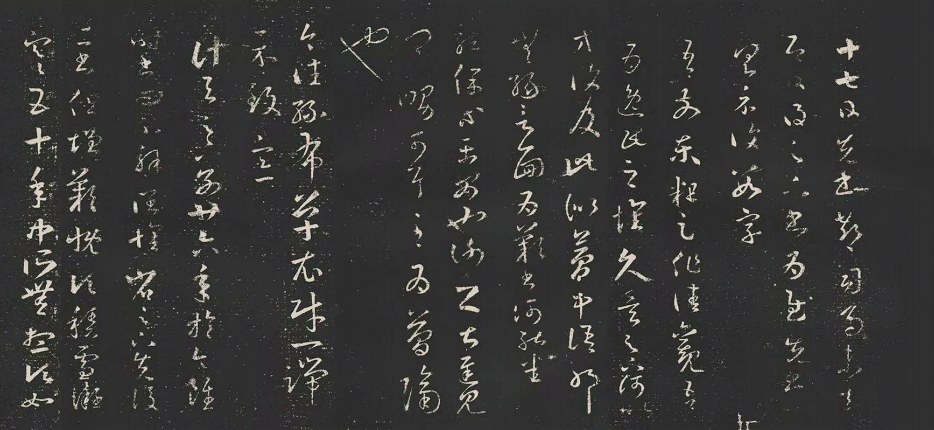 十七日先書郗司馬未去
即日得足下書為慰先書以
具示復數字
吾前東粗足作佳觀吾
為逸民之懷久矣足下何以
方復及此似夢中語耶
無緣言面為歎書何能悉
龍保等平安也謝之甚遲見
卿舅可耳至為簡隔
也
今往絲布單衣財一端
示致意
計與足下別廿六年於今雖
時書問不解闊懷省足下先後
二書但增歎慨頃積雪凝
寒五十年中所無想頃如